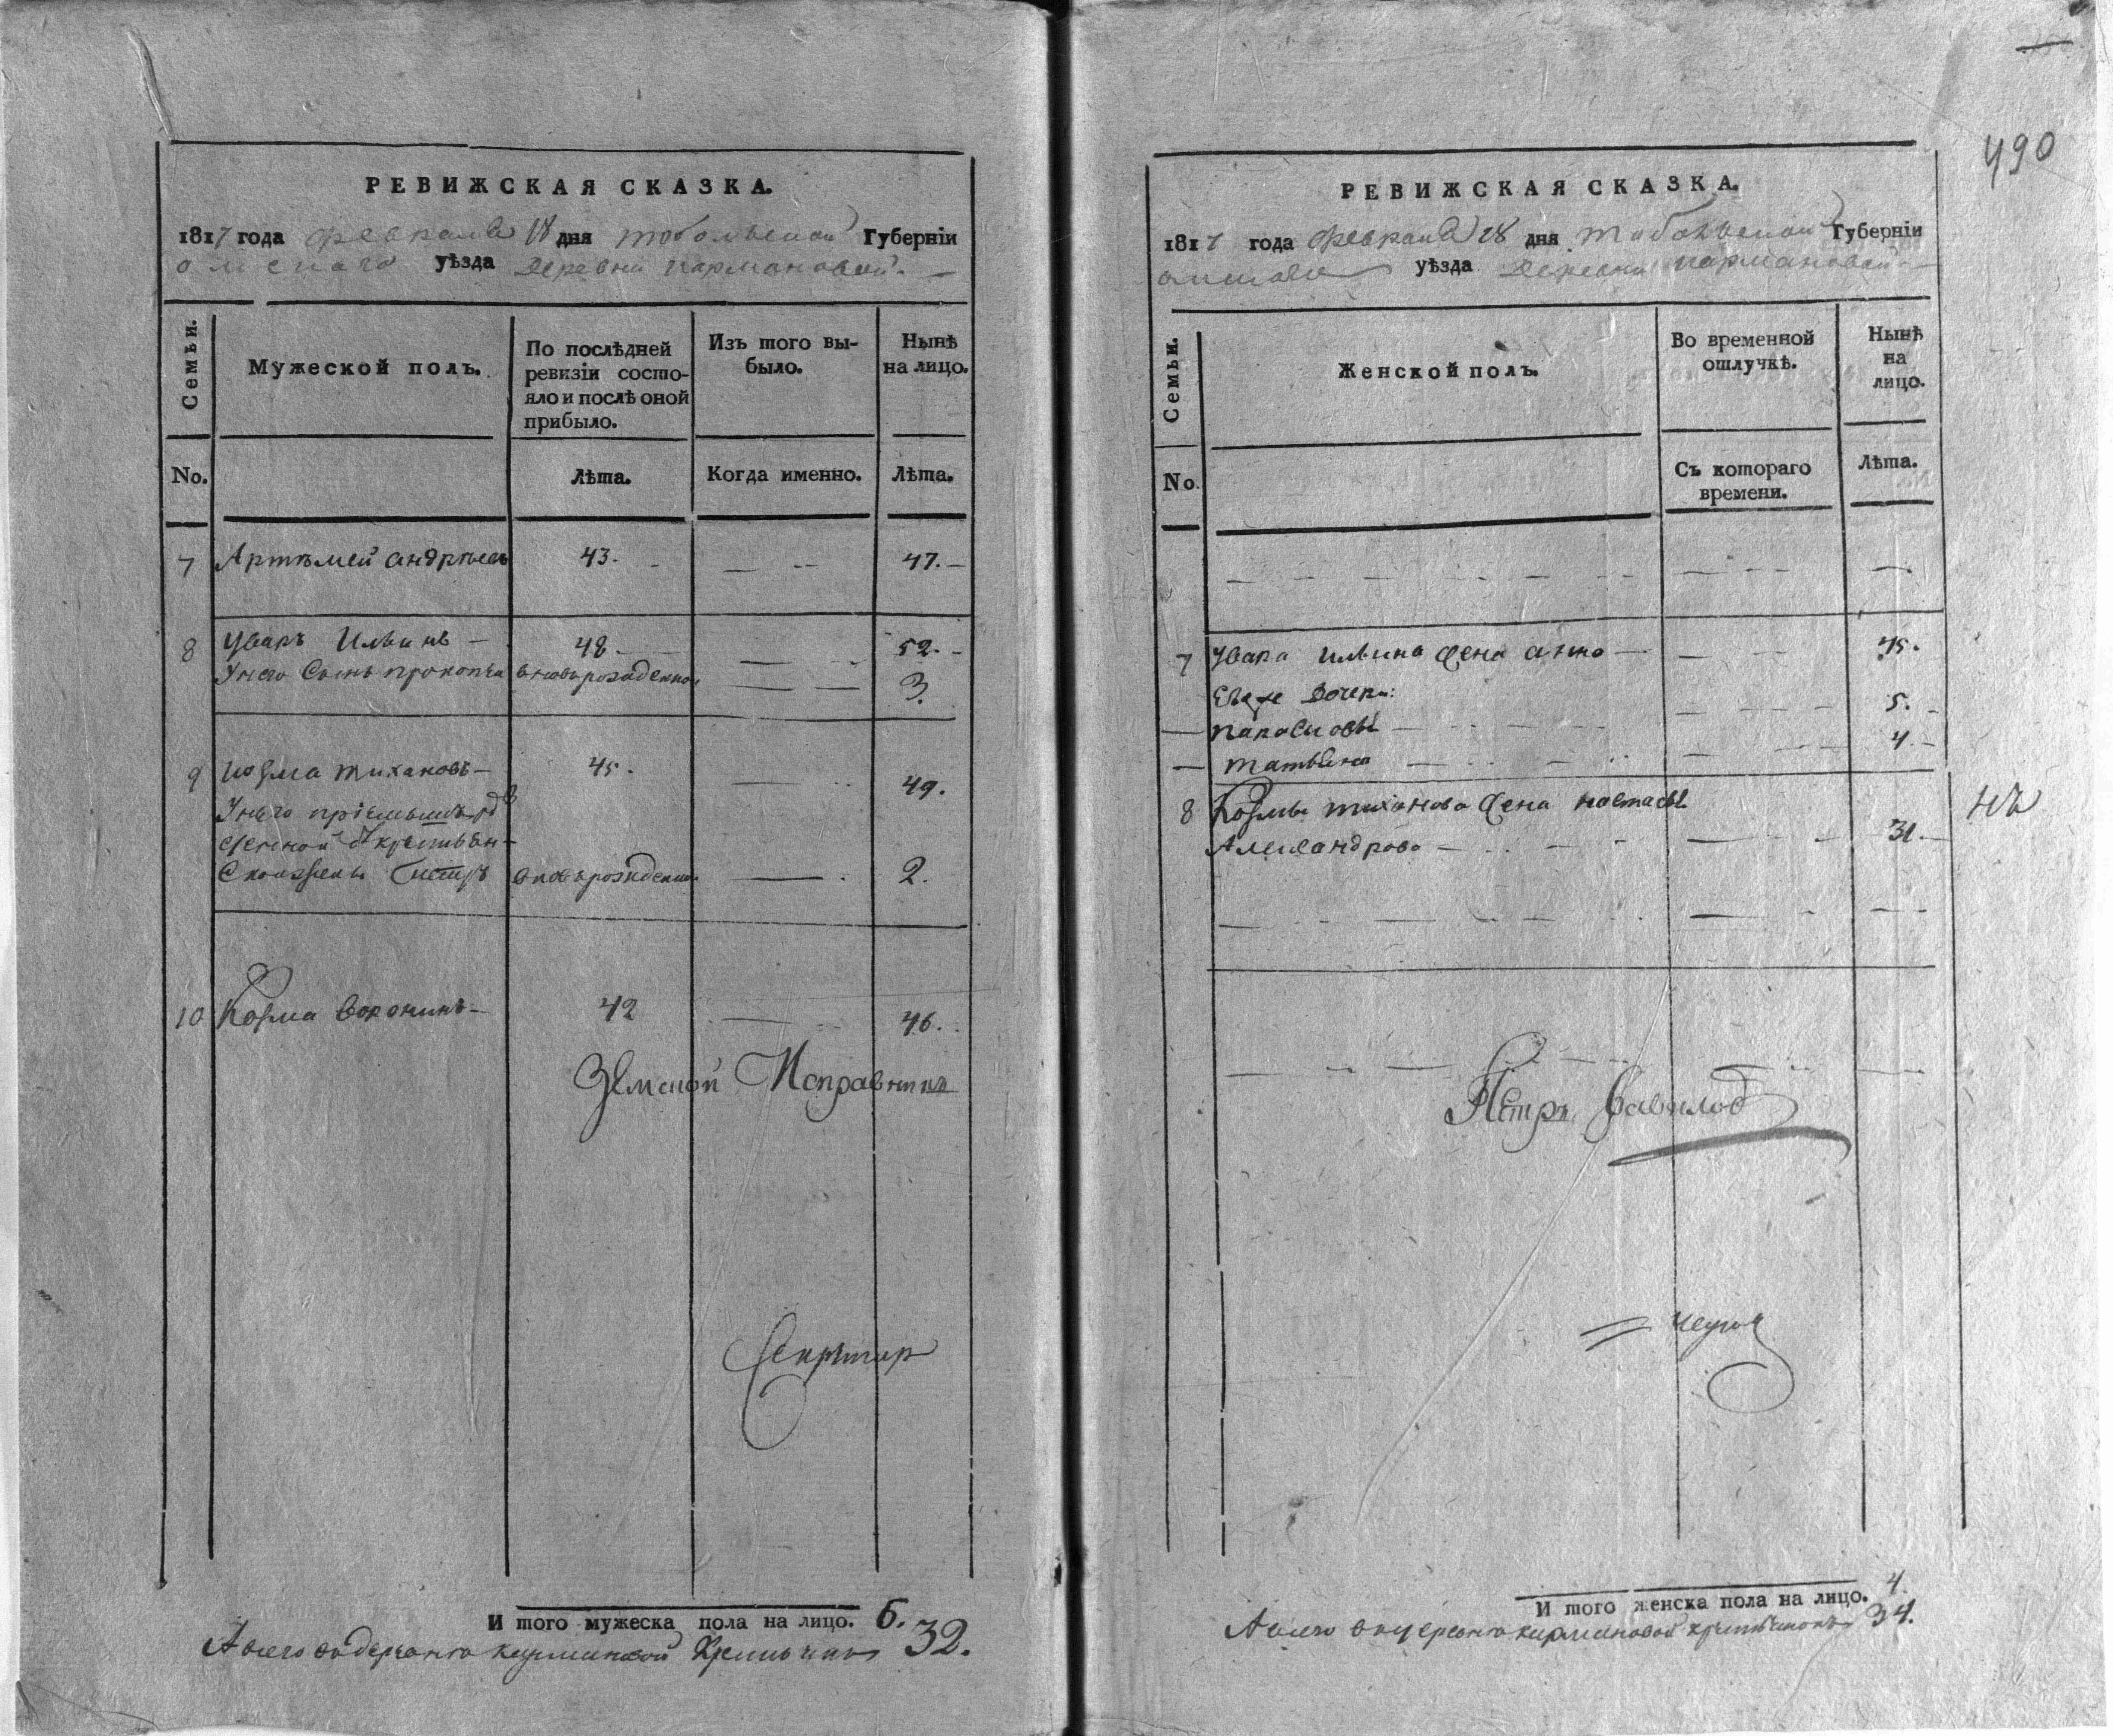 РЕВИЖСКАЯ СКАЗКА.
1817 года февраля 18 дня тобольской Губерніи
омскаго уѣзда деревни кармановой
Семьи. Мужеской полъ. По послѣдней ревизіи состо-яло и послѣ оной прибыло. Изъ того вы-было. Нынѣ на лицо.
No. Лѣта. Когда именно. Лѣта.
7 Артѣмей андрѣевъ 43. 47.
8 Уваръ Ильинъ 48 52.
Унего Сынъ прокопѣи вновьрожденной 3.
9 Козма тихановъ 45. 49.
Унего пріемышъ
крестьян-
Петръ вновьрожденной 2.
10 Козма Воронинъ 42 46.
Земской Исправникъ
Секретарь
И того мужеска пола на лицо. 6.
А всего вдеревни кармановой Крестьянъ 32.
490
РЕВИЖСКАЯ СКАЗКА.
1817 года февраля 18 дня тобольской Губерніи
омскаго уѣзда деревни кармановой
Семьи. Женской полъ. Во временной отлучкѣ. Нынѣ на лицо.
No. Съ котораго времени. Лѣта.
7 Увара ильина жена анна 45.
Ево же дочери: 5.
4.
8 Козмы тиханова жена настасья
Александрова 31.
Петръ Вавилов
И того женска пола на лицо. 4.
А всего вдеревни кармановой крестьянокъ 34.